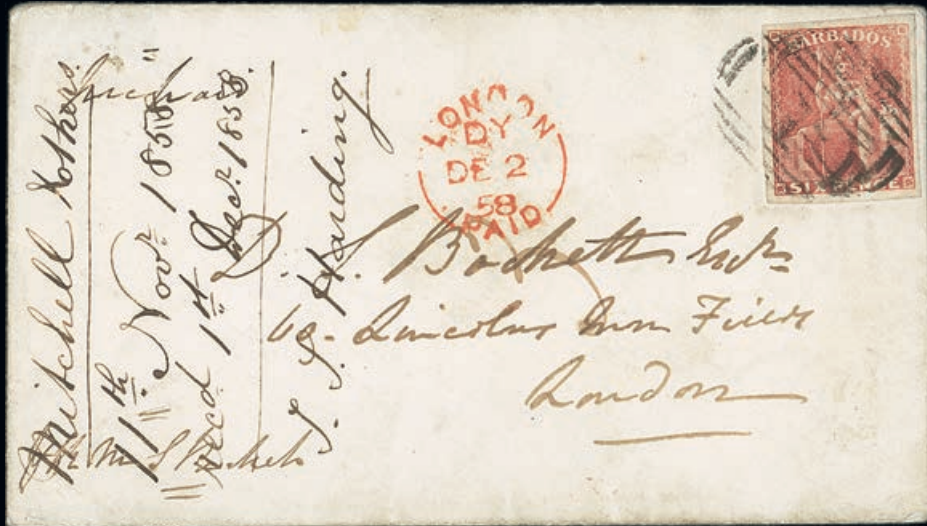 BARBADOS
SIXPENCE
LONDON
DY
DE 2
58
PAID
S. Beckett Esqre
60 Lincolns Inn Fields
London
Mitchell & others.
11th Novr 1858
Recd 1st Decr 1858
J. J. Harding.